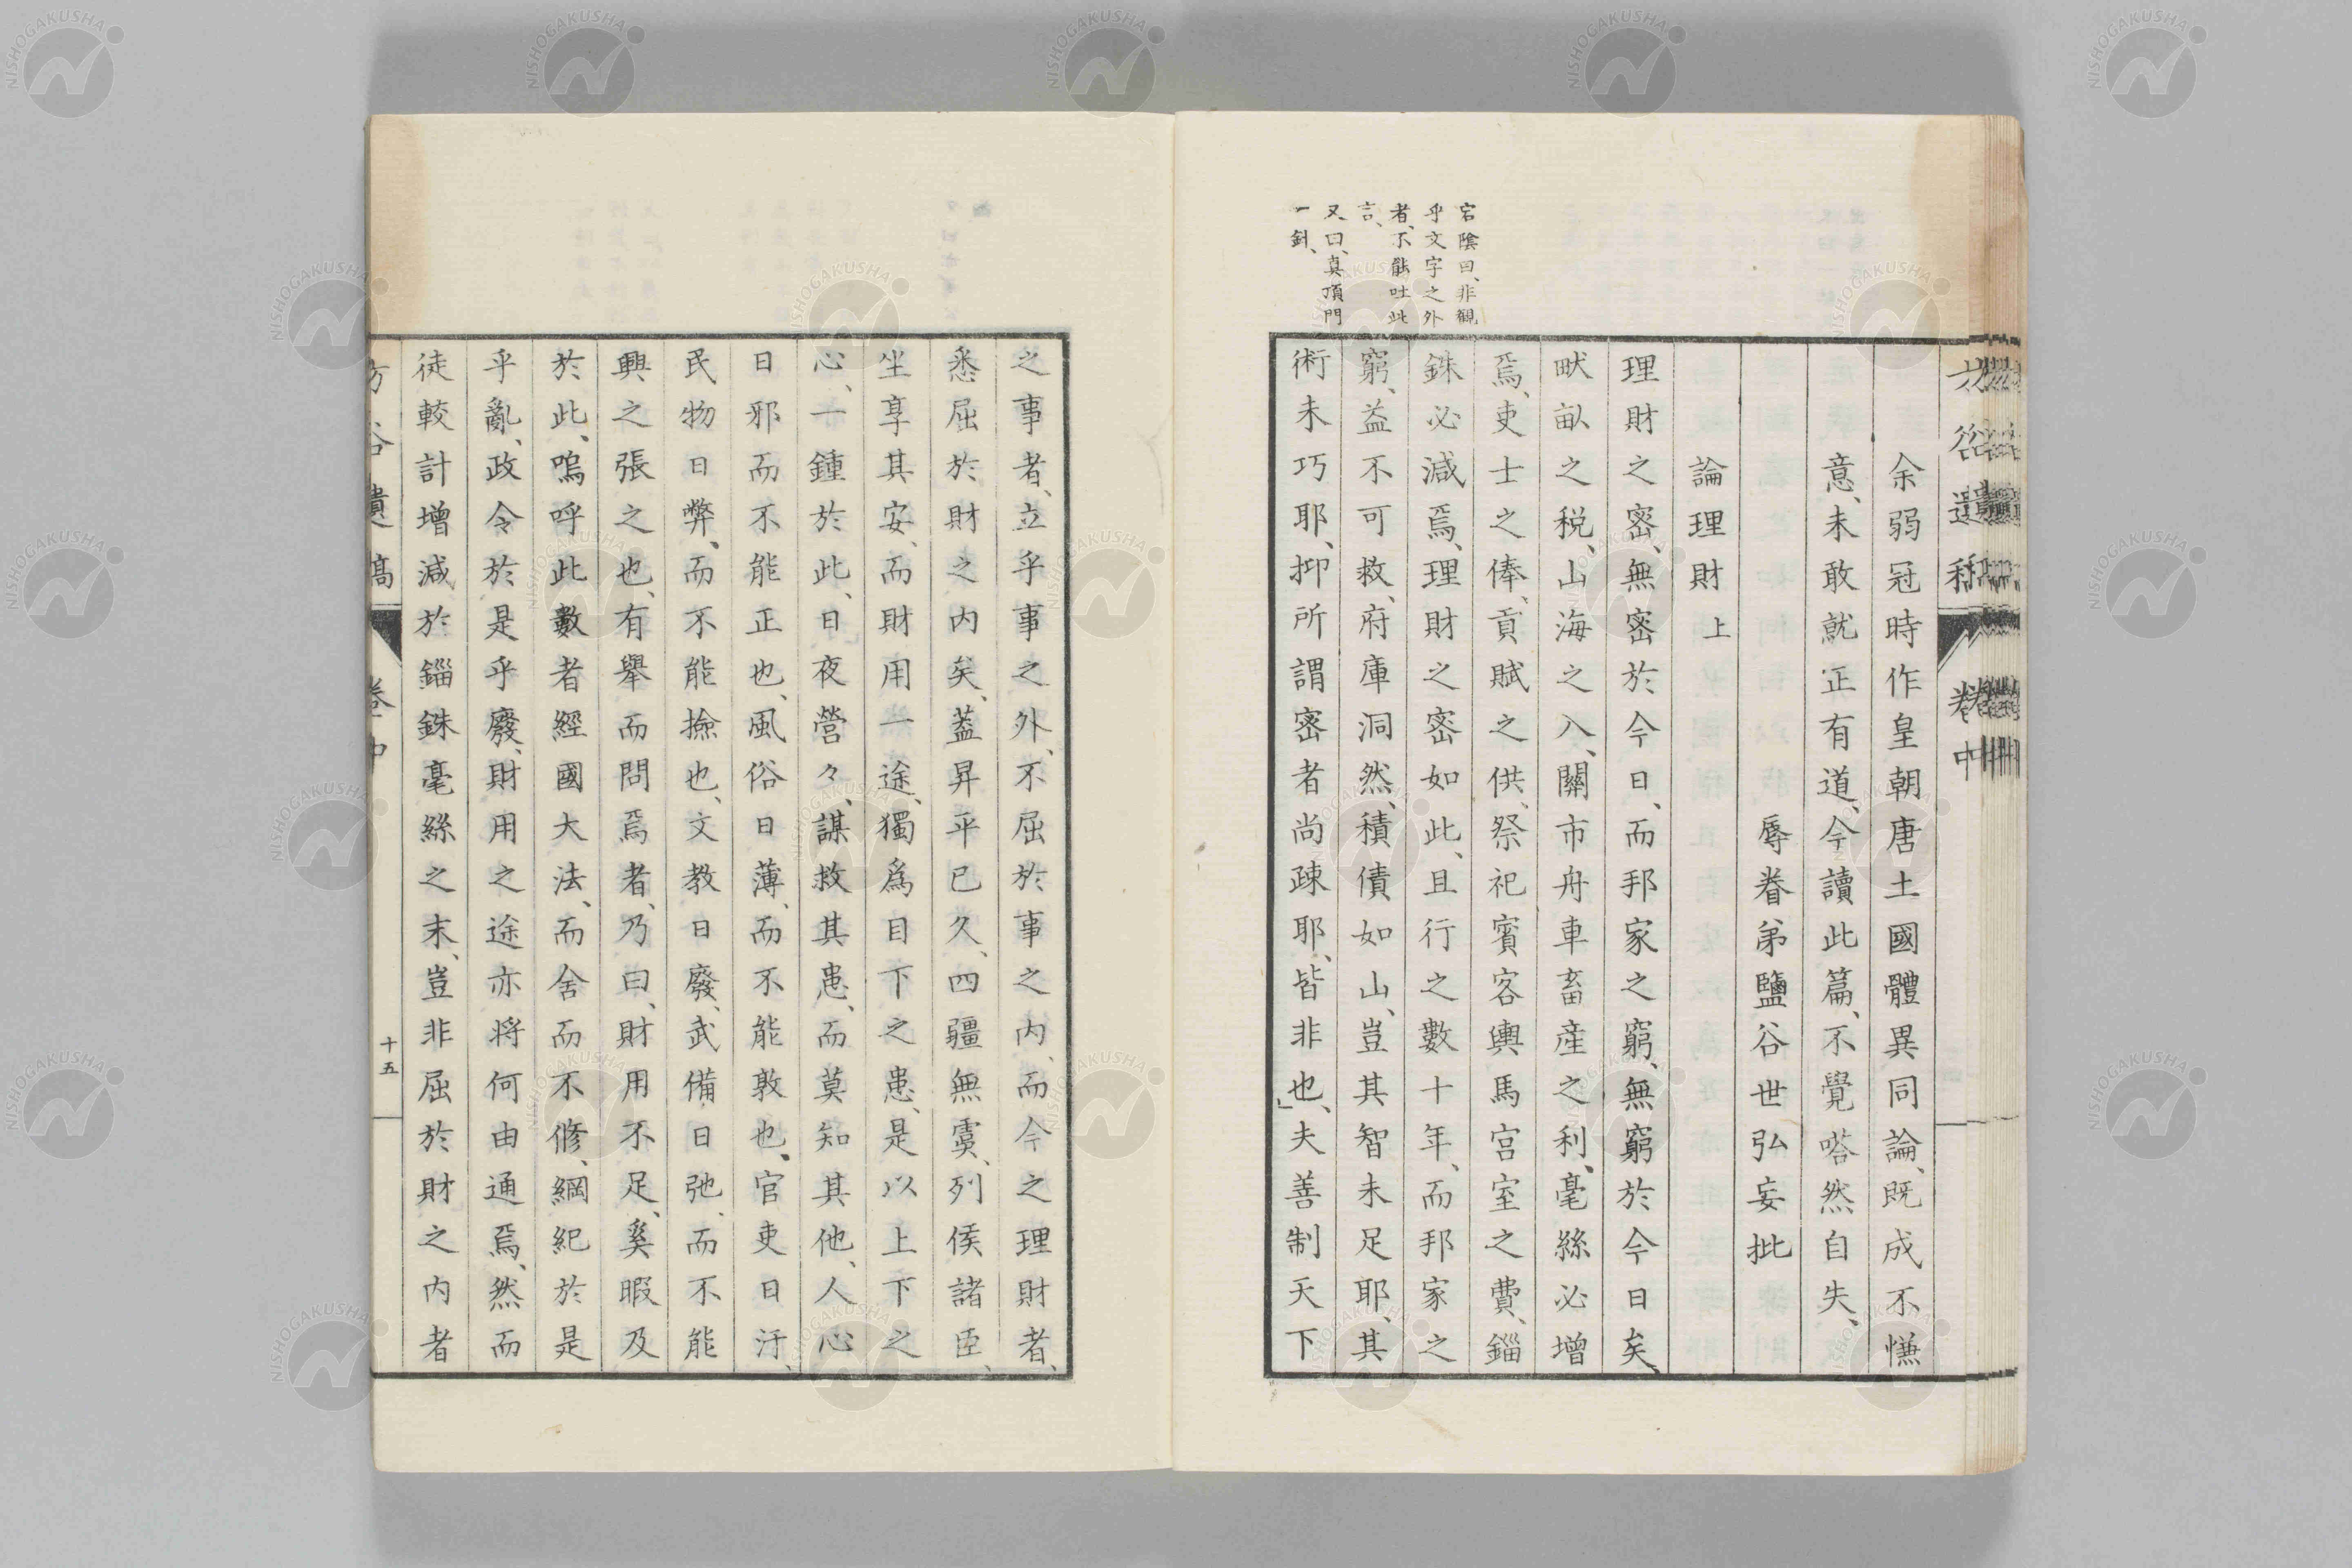 余弱冠時作皇朝唐土國體異同論、既成不慊
意、未敢就正有道、今讀此篇、不覺嗒然自失、
辱眷弟鹽谷世弘妄批
論理財上
理財之密、無密於今日、而邦家之窮、無窮於今日矣、
畎畝之税、山海之入、關市舟車畜産之利、毫絲必增
焉、吏士之俸、貢賦之供、祭祀賓客輿馬宮室之費、錙
銖必減焉、理財之密如此、且行之數十年、而邦家之
窮、益不可救、府庫洞然、積債如山、豈其智未足耶、其
術未巧耶、抑所謂密者尚疎耶、皆非也、」夫善制天下
宕陰曰、非觀
乎文字之外
者、不能吐此
言、
又曰、真頂門
一針、
之事者、立乎事之外、不屈於事之内、而今之理財者、
悉屈於財之内矣、蓋昇平已久、四疆無虞、列侯諸臣、
坐享其安、而財用一途、獨爲目下之患、是以上下之
心、一鍾於此、日夜營々、謀救其患、而莫知其他、人心
日邪而不能正也、風俗日薄、而不能敦也、官吏日汙、
民物日弊、而不能撿也、文教日廢、武備日弛、而不能
興之張之也、有舉而問焉者、乃曰、財用不足、奚暇及
於此、嗚呼此數者經國大法、而舍而不修、綱紀於是
乎亂、政令於是乎廢、財用之途亦将何由通焉、然而
徒較計增減於錙銖毫絲之末、豈非屈於財之内者
方谷遺稿
卷中
十五
方谷遺稿
卷中
NISHOGAKUSHA